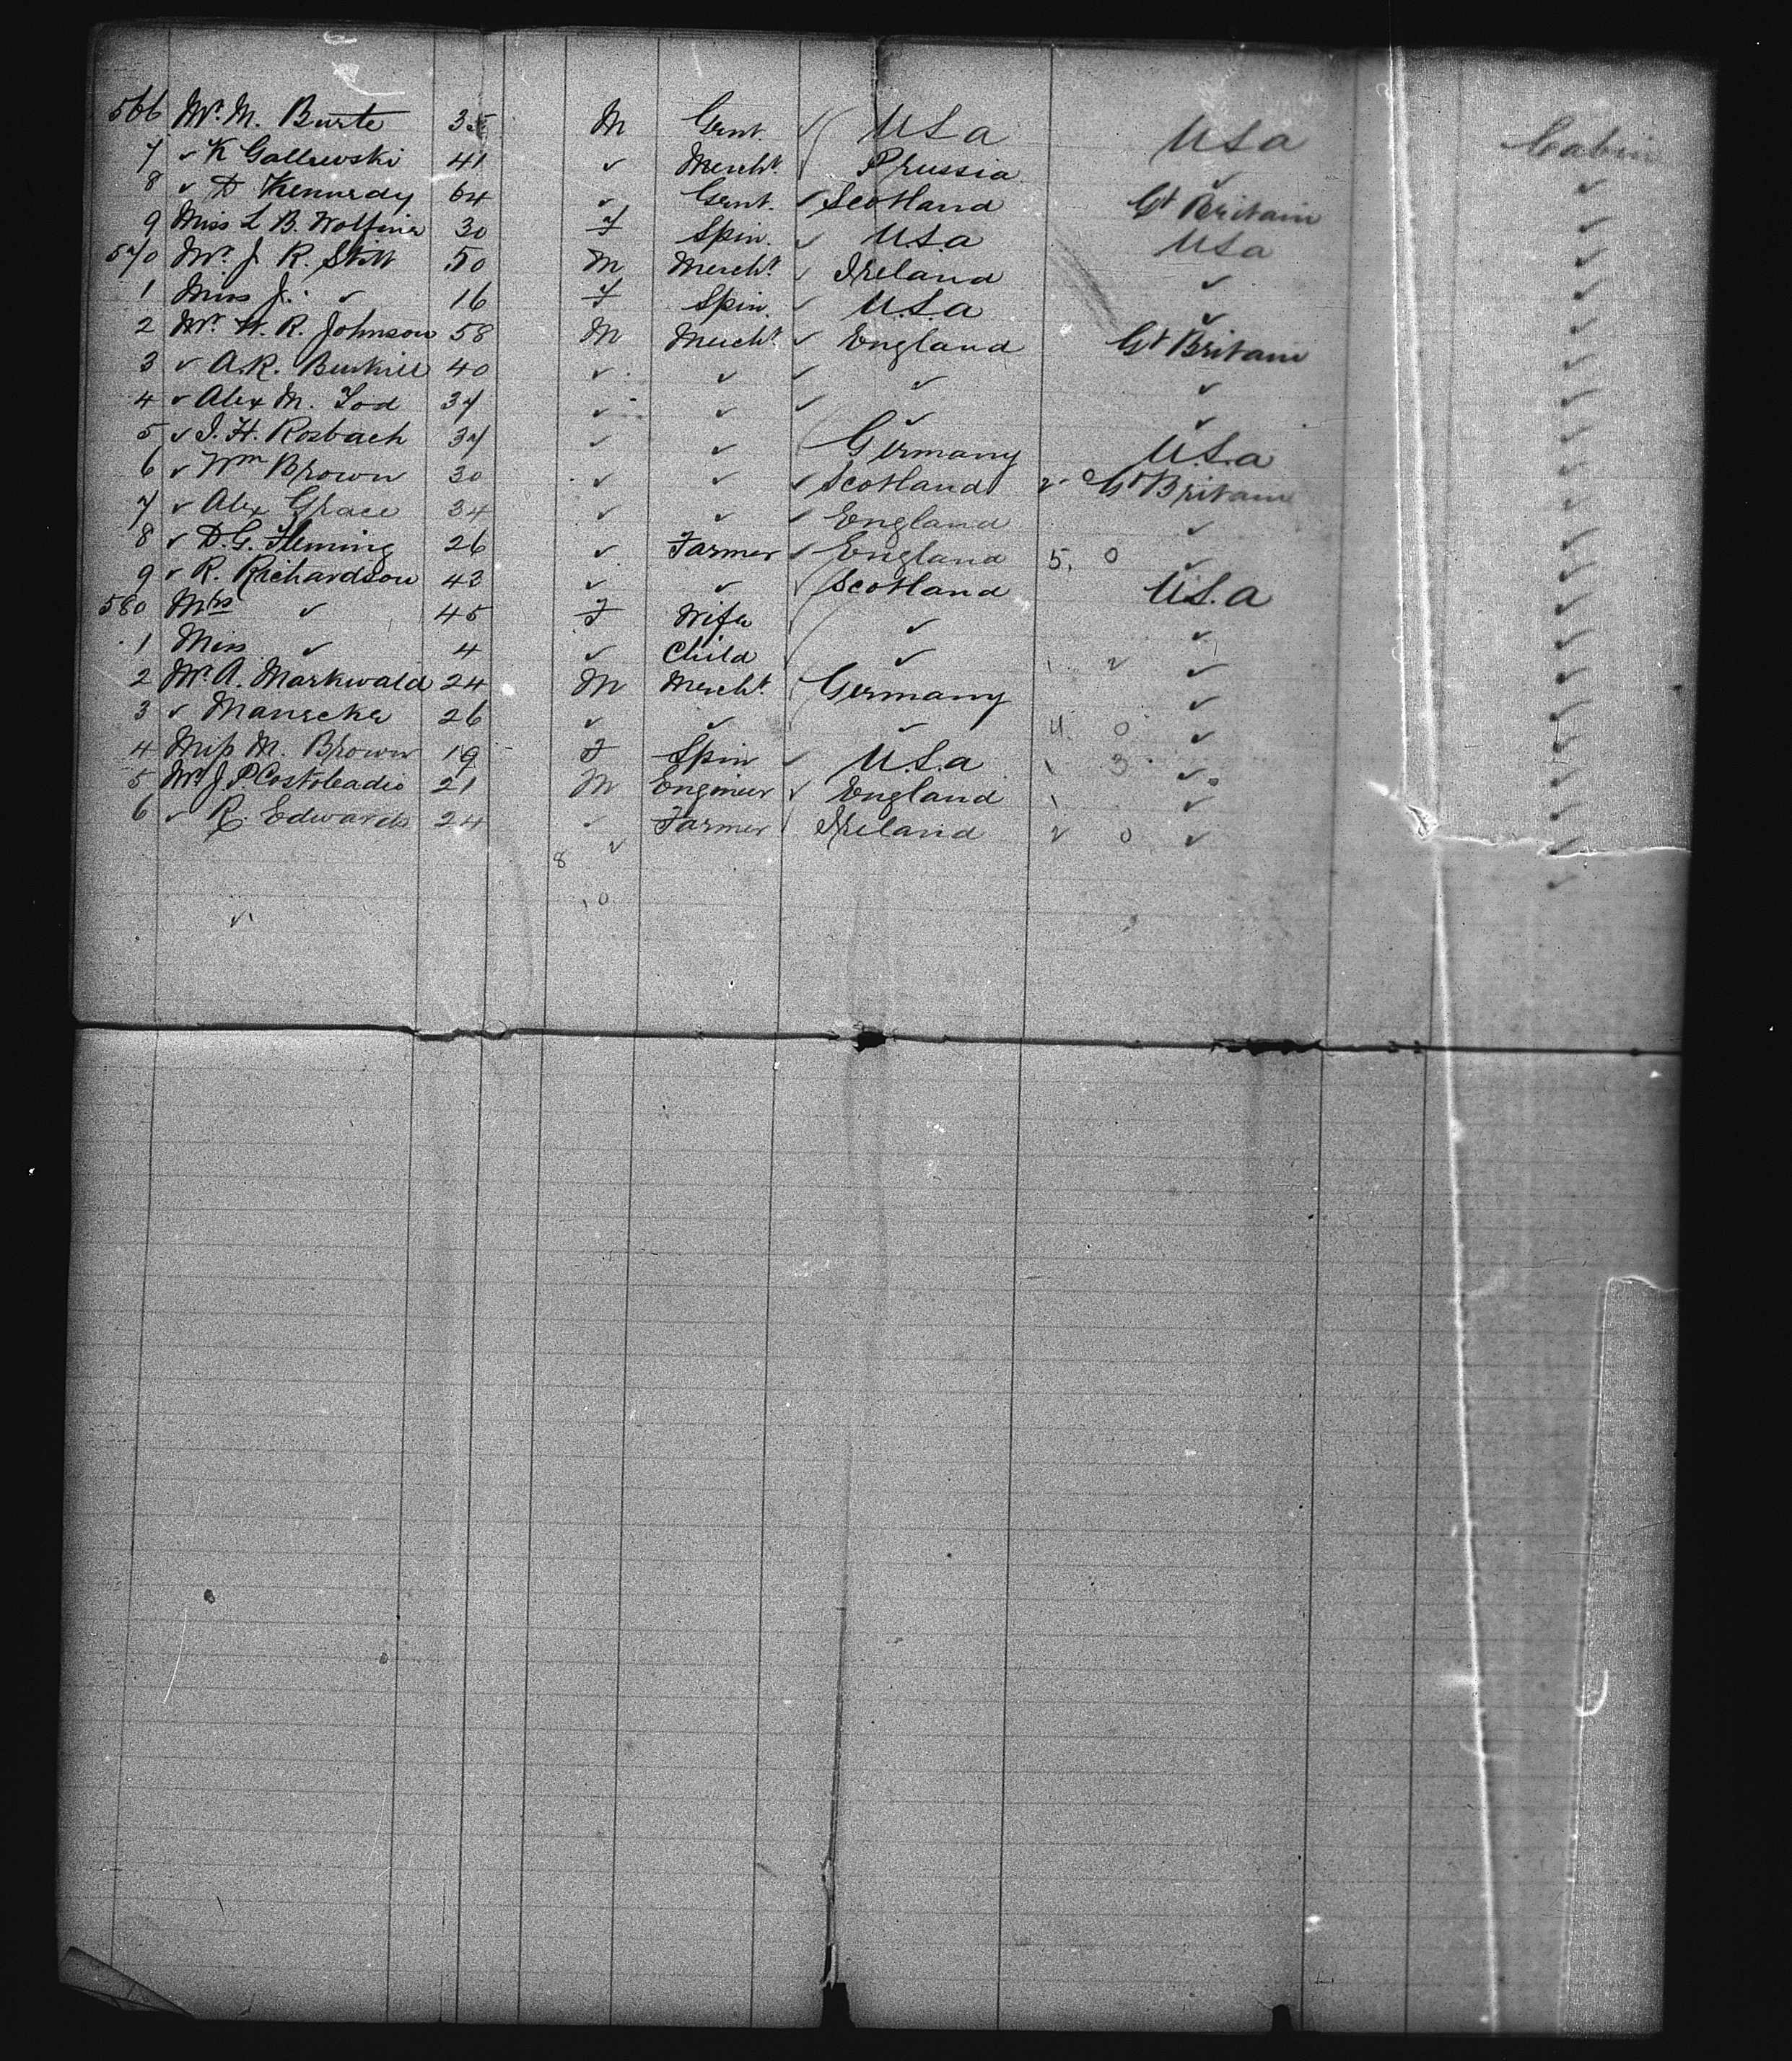 566 Mr. M. Burte 35 M Gent ✓ U.S.a U.S.a Cabin
7 ✓ K Gallewski 41 ✓ Mercht. Prussia ✓ ✓
8 ✓ D. Kennedy 64 ✓ Gent. ✓ Scotland Gt Britain ✓
9 Miss L. B. 30 F Spin. ✓ U.S.a U.S.a ✓
570 Mr. J. R. Stitt 50 M Mercht ✓ Ireland ✓ ✓
1 Miss J. ✓ 16 F Spin. ✓ U.S.a ✓ ✓
2 Mr. R. Johnson 58 M Mercht ✓ England Gt Britain ✓
3 ✓ A.R. Burkill 40 ✓ ✓ ✓ ✓ ✓ ✓
4 ✓ Alex M. Tod 37 ✓ ✓ ✓ ✓ ✓ ✓
5 ✓ J. H. Rosbach 37 ✓ ✓ Germany U.S.a ✓
6 ✓ Wm Brown 30 ✓ ✓ ✓ Scotland Gt Britain ✓
7 ✓ Alex Grace 34 ✓ ✓ ✓ England ✓ ✓
8 ✓ D.G. Fleming 26 ✓ Farmer ✓ England 5. 0 ✓ ✓
9 ✓ R. Richardson 43 ✓ ✓ Scotland U.S.a ✓
580 Mrs ✓ 45 F Wife ✓ ✓ ✓
1 Miss ✓ 4 ✓ Child ✓ ✓ ✓
2 Mr. A. Markwald 24 M Mercht. Germany ✓ ✓
3 ✓ Manecke 26 ✓ ✓ ✓ 4. 0 ✓ ✓
4 Miss M. Brown 19 F Spin ✓ U.S.a 3 ✓ ✓
5 Mr J. P. 21 M Engineer ✓ England ✓ ✓
6 ✓ R. Edwards 24 ✓ Farmer Ireland 0 ✓ ✓
8 ✓
10